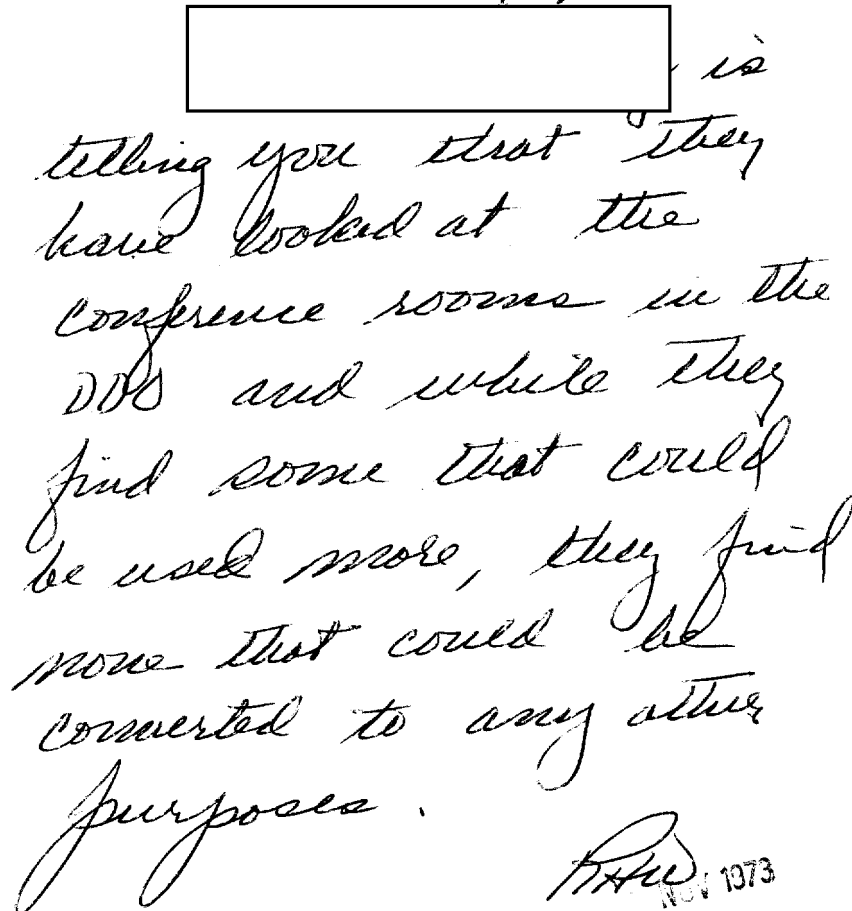 is
telling you that they
have looked at the
conference rooms in the
DDO and while they
find some that could
be used more, they find
none that could be
converted to any other
purposes.
NOV 1973